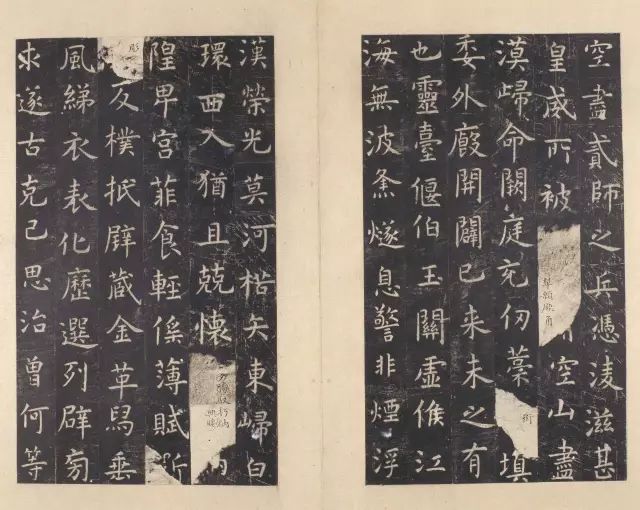 空盡貳師之兵憑淩滋甚
皇威所被顙厥角空山盡
漠歸命闕庭充仞藁街填
委外廄開闢已來未之有
也靈臺偃伯玉關虛候江
海無波烽燧息警非煙浮
漢榮光莫河楛矢東歸白
環西入猶且兢懷夕惕
隍卑宮菲食輕傜薄賦斲
彫反樸抵璧藏金革舄垂
風綈衣表化歷選列辟旁
求遂古克己思治曾何等